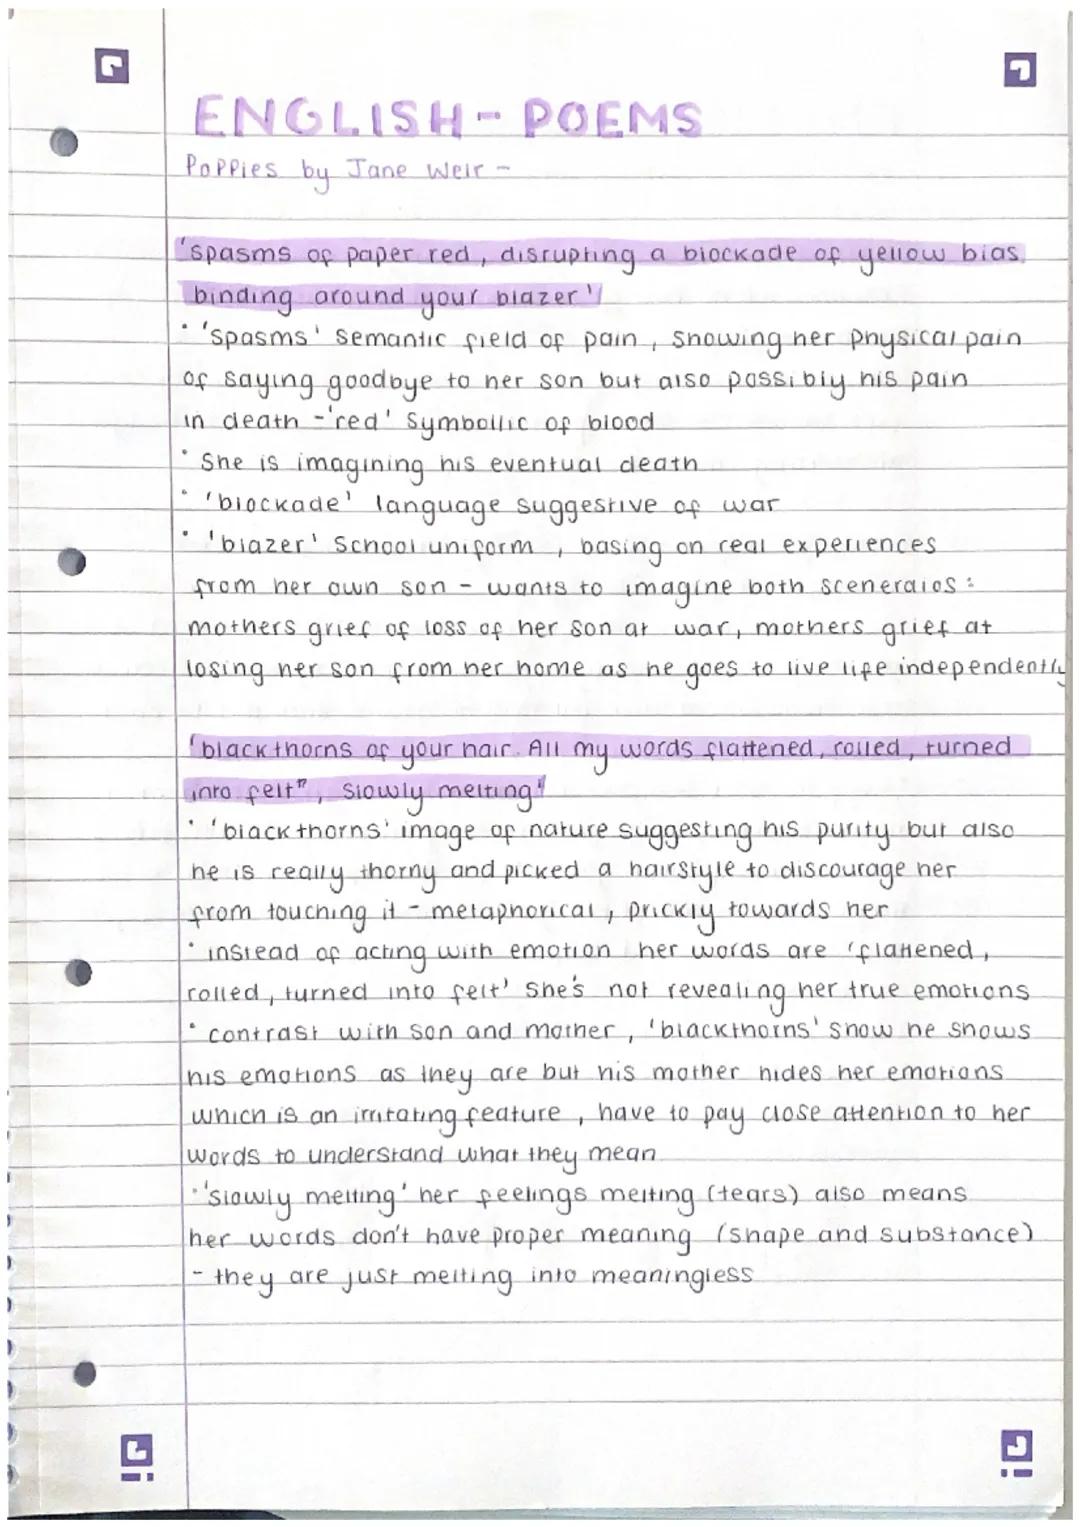 ENGLISH - POEMS
Poppies by Jane Weir -
'spasms of paper red, disrupting a blockade of yellow bias
binding around your blazer'
• 'spasms' semantic field of pain, showing her physical pain
of saying goodbye to her son but also possibly his pain
in death - 'red' Symbollic of blood
• She is imagining his eventual death
• 'blockade' language suggestive of war
• 'blazer' School uniform, basing on real experiences
from her own son - wants to imagine both sceneraios:
mothers grief of loss of her son at war, mothers grief at
losing her son from her home as he goes to live life independently
'blackthorns of your hair. All my words flattened, rolled, turned
into felt", slowly melting'
• 'blackthorns' image of nature suggesting his purity but also
he is really thorny and picked a hairstyle to discourage her
from touching it - metaphorical, prickly towards her
• instead of acting with emotion her words are 'flattened,
rolled, turned into felt' she's not revealing her true emotions
• contrast with son and mother, 'blackthorns' show he shows
his emotions as they are but his mother hides her emotions
which is an irritating feature, have to pay close attention to her
words to understand what they mean
• 'slowly melting' her feelings melting (tears) also means
her words don't have proper meaning (shape and substance)
- they are just melting into meaningless